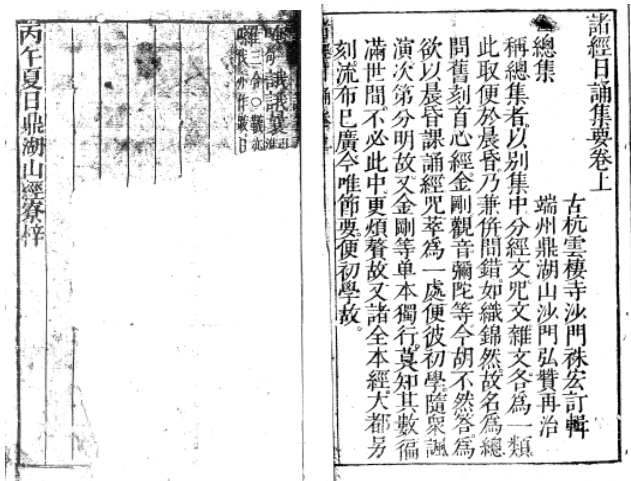 諸經日誦集要卷上
古杭雲棲寺沙門袾宏訂輯
端州鼎湖山沙門弘贊再治
總集
稱總集者以別集中分經文咒文雜文各為一類
此取便於晨昏乃兼併間錯如織錦然故名為總
問舊刻首心經金剛觀音彌陀等今胡不然答為
欲以晨昏課誦經咒萃為一處便彼初學隨衆諷
演次第分明故又金剛等单本獨行莫知其數徧
滿世間不必此中更煩贅故又諸全本經大都另
刻流布已廣今唯節要便初學故。
丙午夏日鼎湖山經寮梓